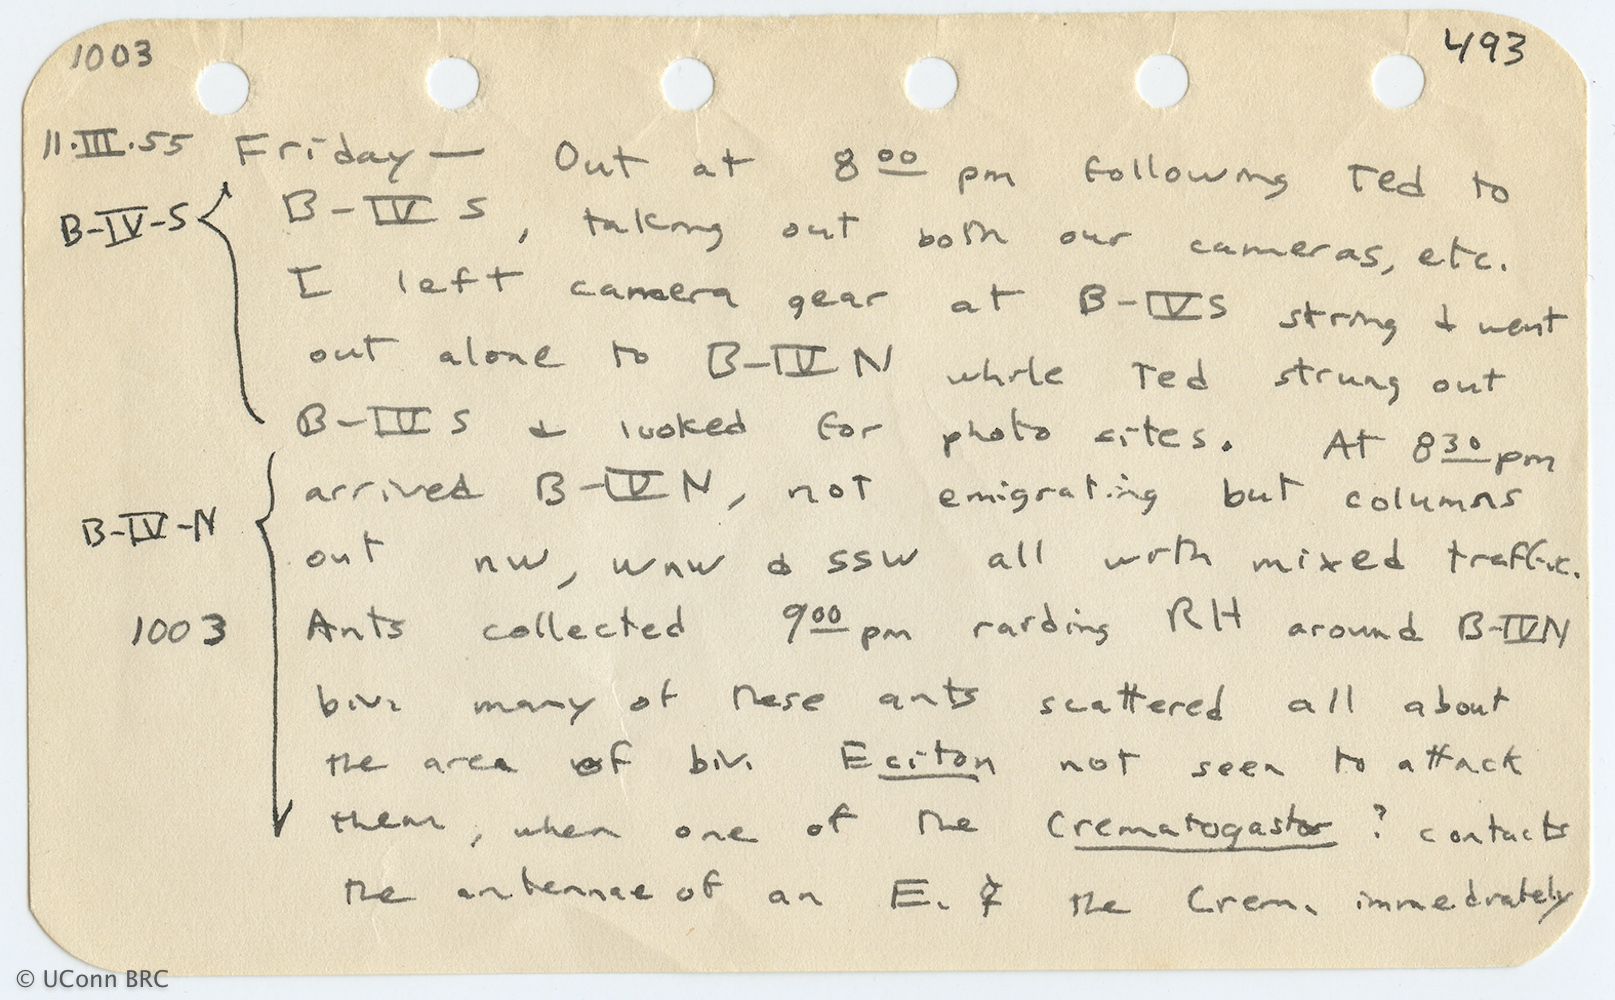 1003 493
11·III·55 Friday — Out at 8 00 pm following Ted to
B-IV-S B-IV S, taking out both our cameras, etc.
I left camera gear at B-IV S string & went
out alone to B-IV N while Ted strung out
B-IV S & looked for photo sites. At 8 30 pm
arrived B-IV N, not emigrating but columns
B-IV-N
out NW, WNW & SSW all with mixed traffic.
1003 Ants collected 9 00 pm raiding RH around B-IVN
biv. many of these ants scattered all about
the area of biv. Eciton not seen to attack
them, when one of the Crematogaster ? contacts
the antennae of an E. ☿ the Crem. immediately
© UConn BRC